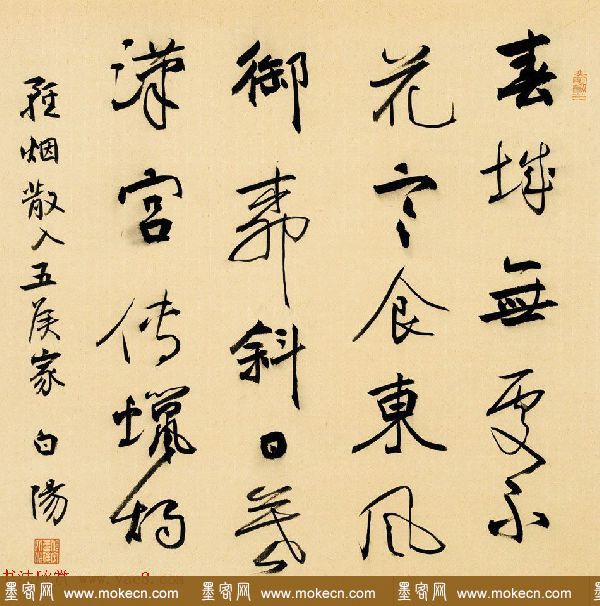 春城無處不
花寒食東風
御柳斜日暮
漢宮传蠟烛
軽烟散入五侯家 白陽
墨客网 www.mokecn.com 墨客网 www.mokecn.com 墨客网 www.mokecn.com